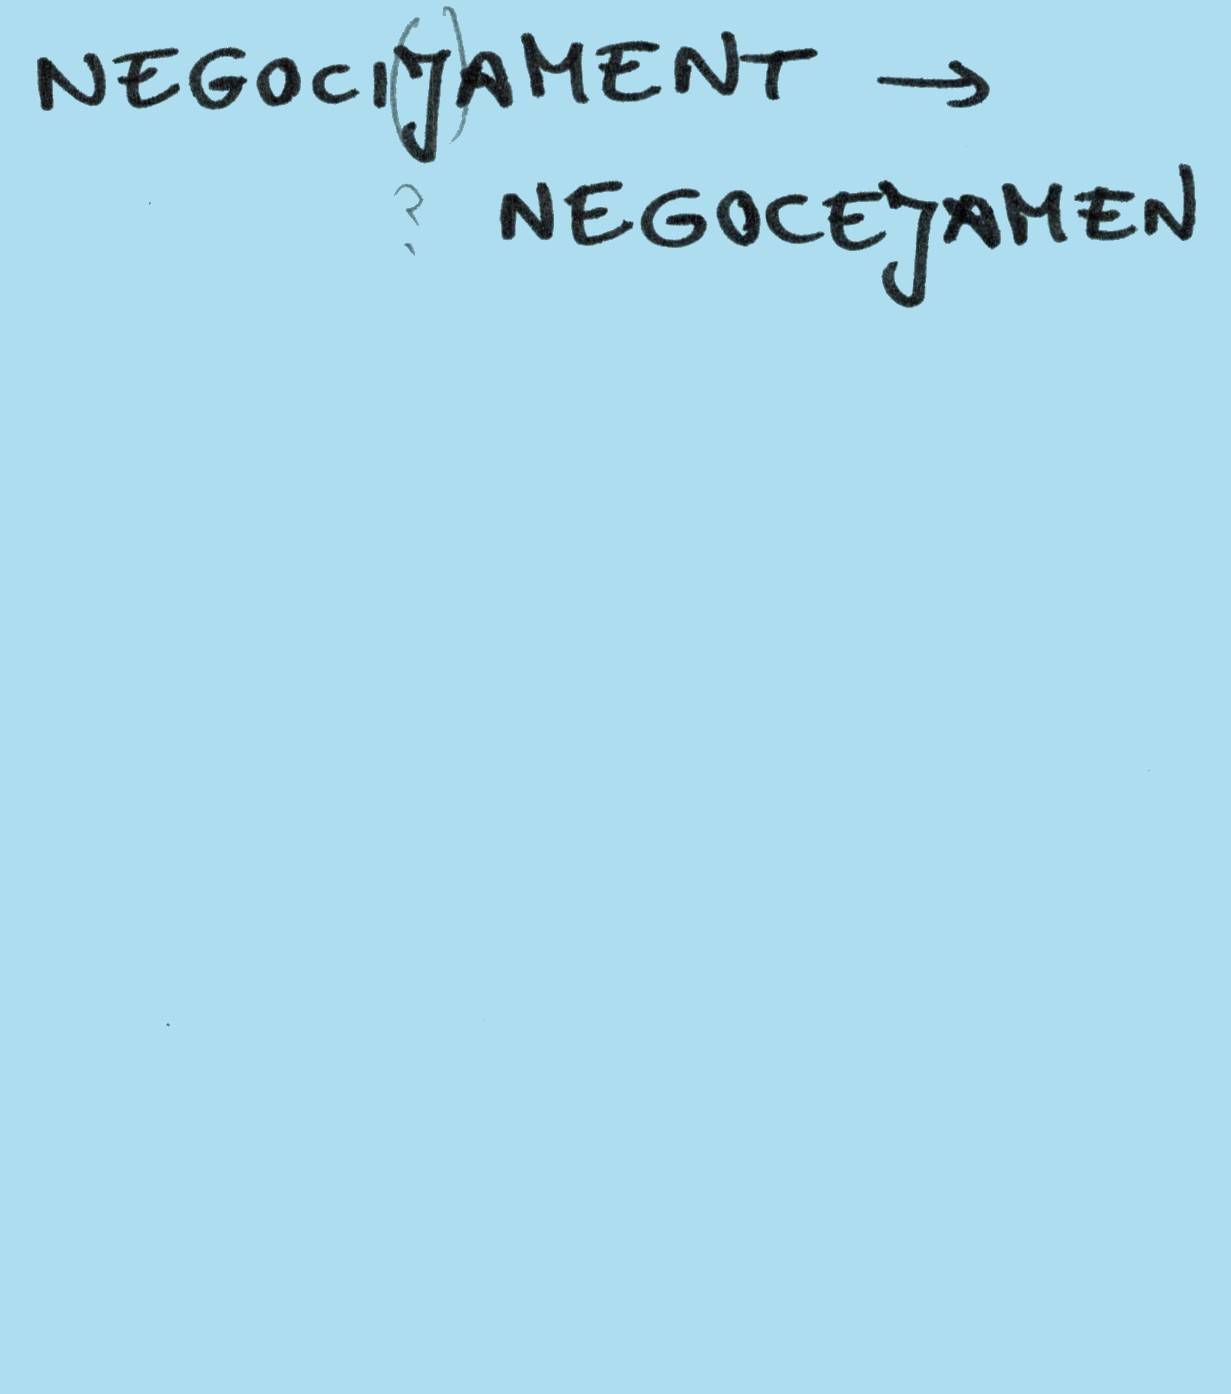 NEGOCI(J)AMENT →
? NEGOCEJAMEN